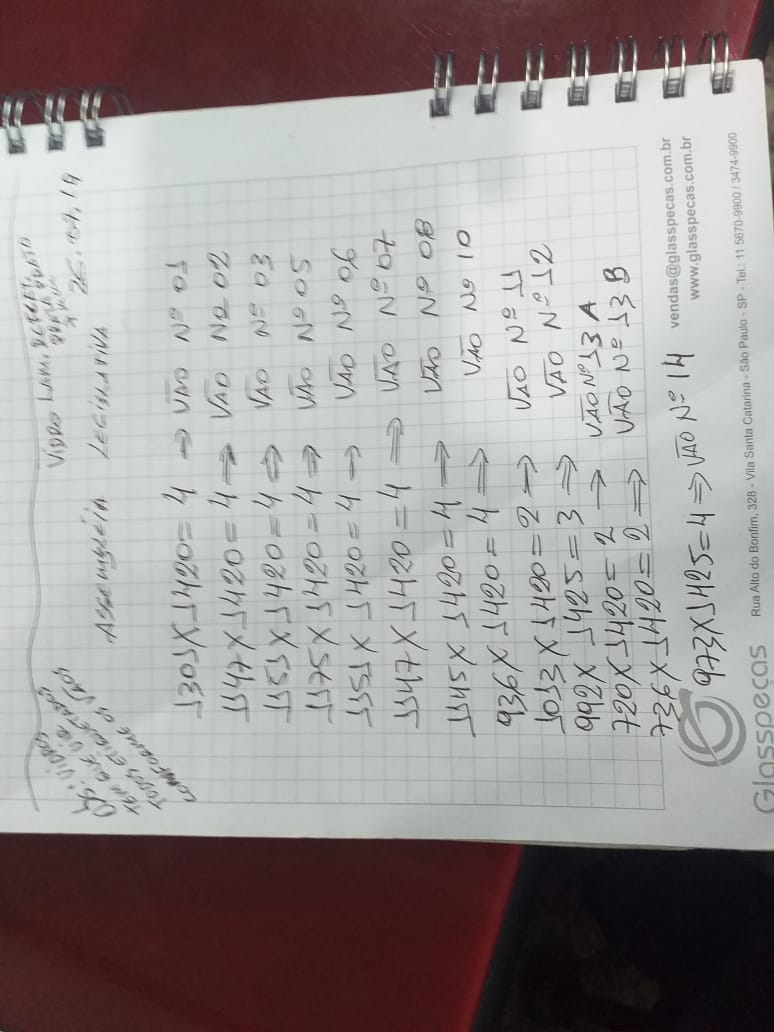 VIDRO LAM.
OBS: VIDROS
TEM QUE VIR
TODOS ETIQUETADOS
CONFORME OS VÃOS
ASSEMBLEIA LEGISLATIVA
1301 X 1420 = 4 → VÃO Nº 01
1147 X 1420 = 4 → VÃO Nº 02
1151 X 1420 = 4 → VÃO Nº 03
1175 X 1420 = 4 → VÃO Nº 05
1151 X 1420 = 4 → VÃO Nº 06
1147 X 1420 = 4 ⇒ VÃO Nº 07
1145 X 1420 = 4 ⇒ VÃO Nº 08
936 X 1420 = 4 ⇒ VÃO Nº 10
1013 X 1420 = 2 → VÃO Nº 11
992 X 1425 = 3 ⇒ VÃO Nº 12
720 X 1420 = 2 → VÃO Nº 13 A
736 X 1420 = 2 ⇒ VÃO Nº 13 B
973 X 1425 = 4 ⇒ VÃO Nº 14
vendas@glasspecas.com.br
www.glasspecas.com.br
Glasspeças
Rua Alto do Bonfim, 328 - Vila Santa Catarina - São Paulo - SP - Tel.: 11 5670-9900 / 3474-9900